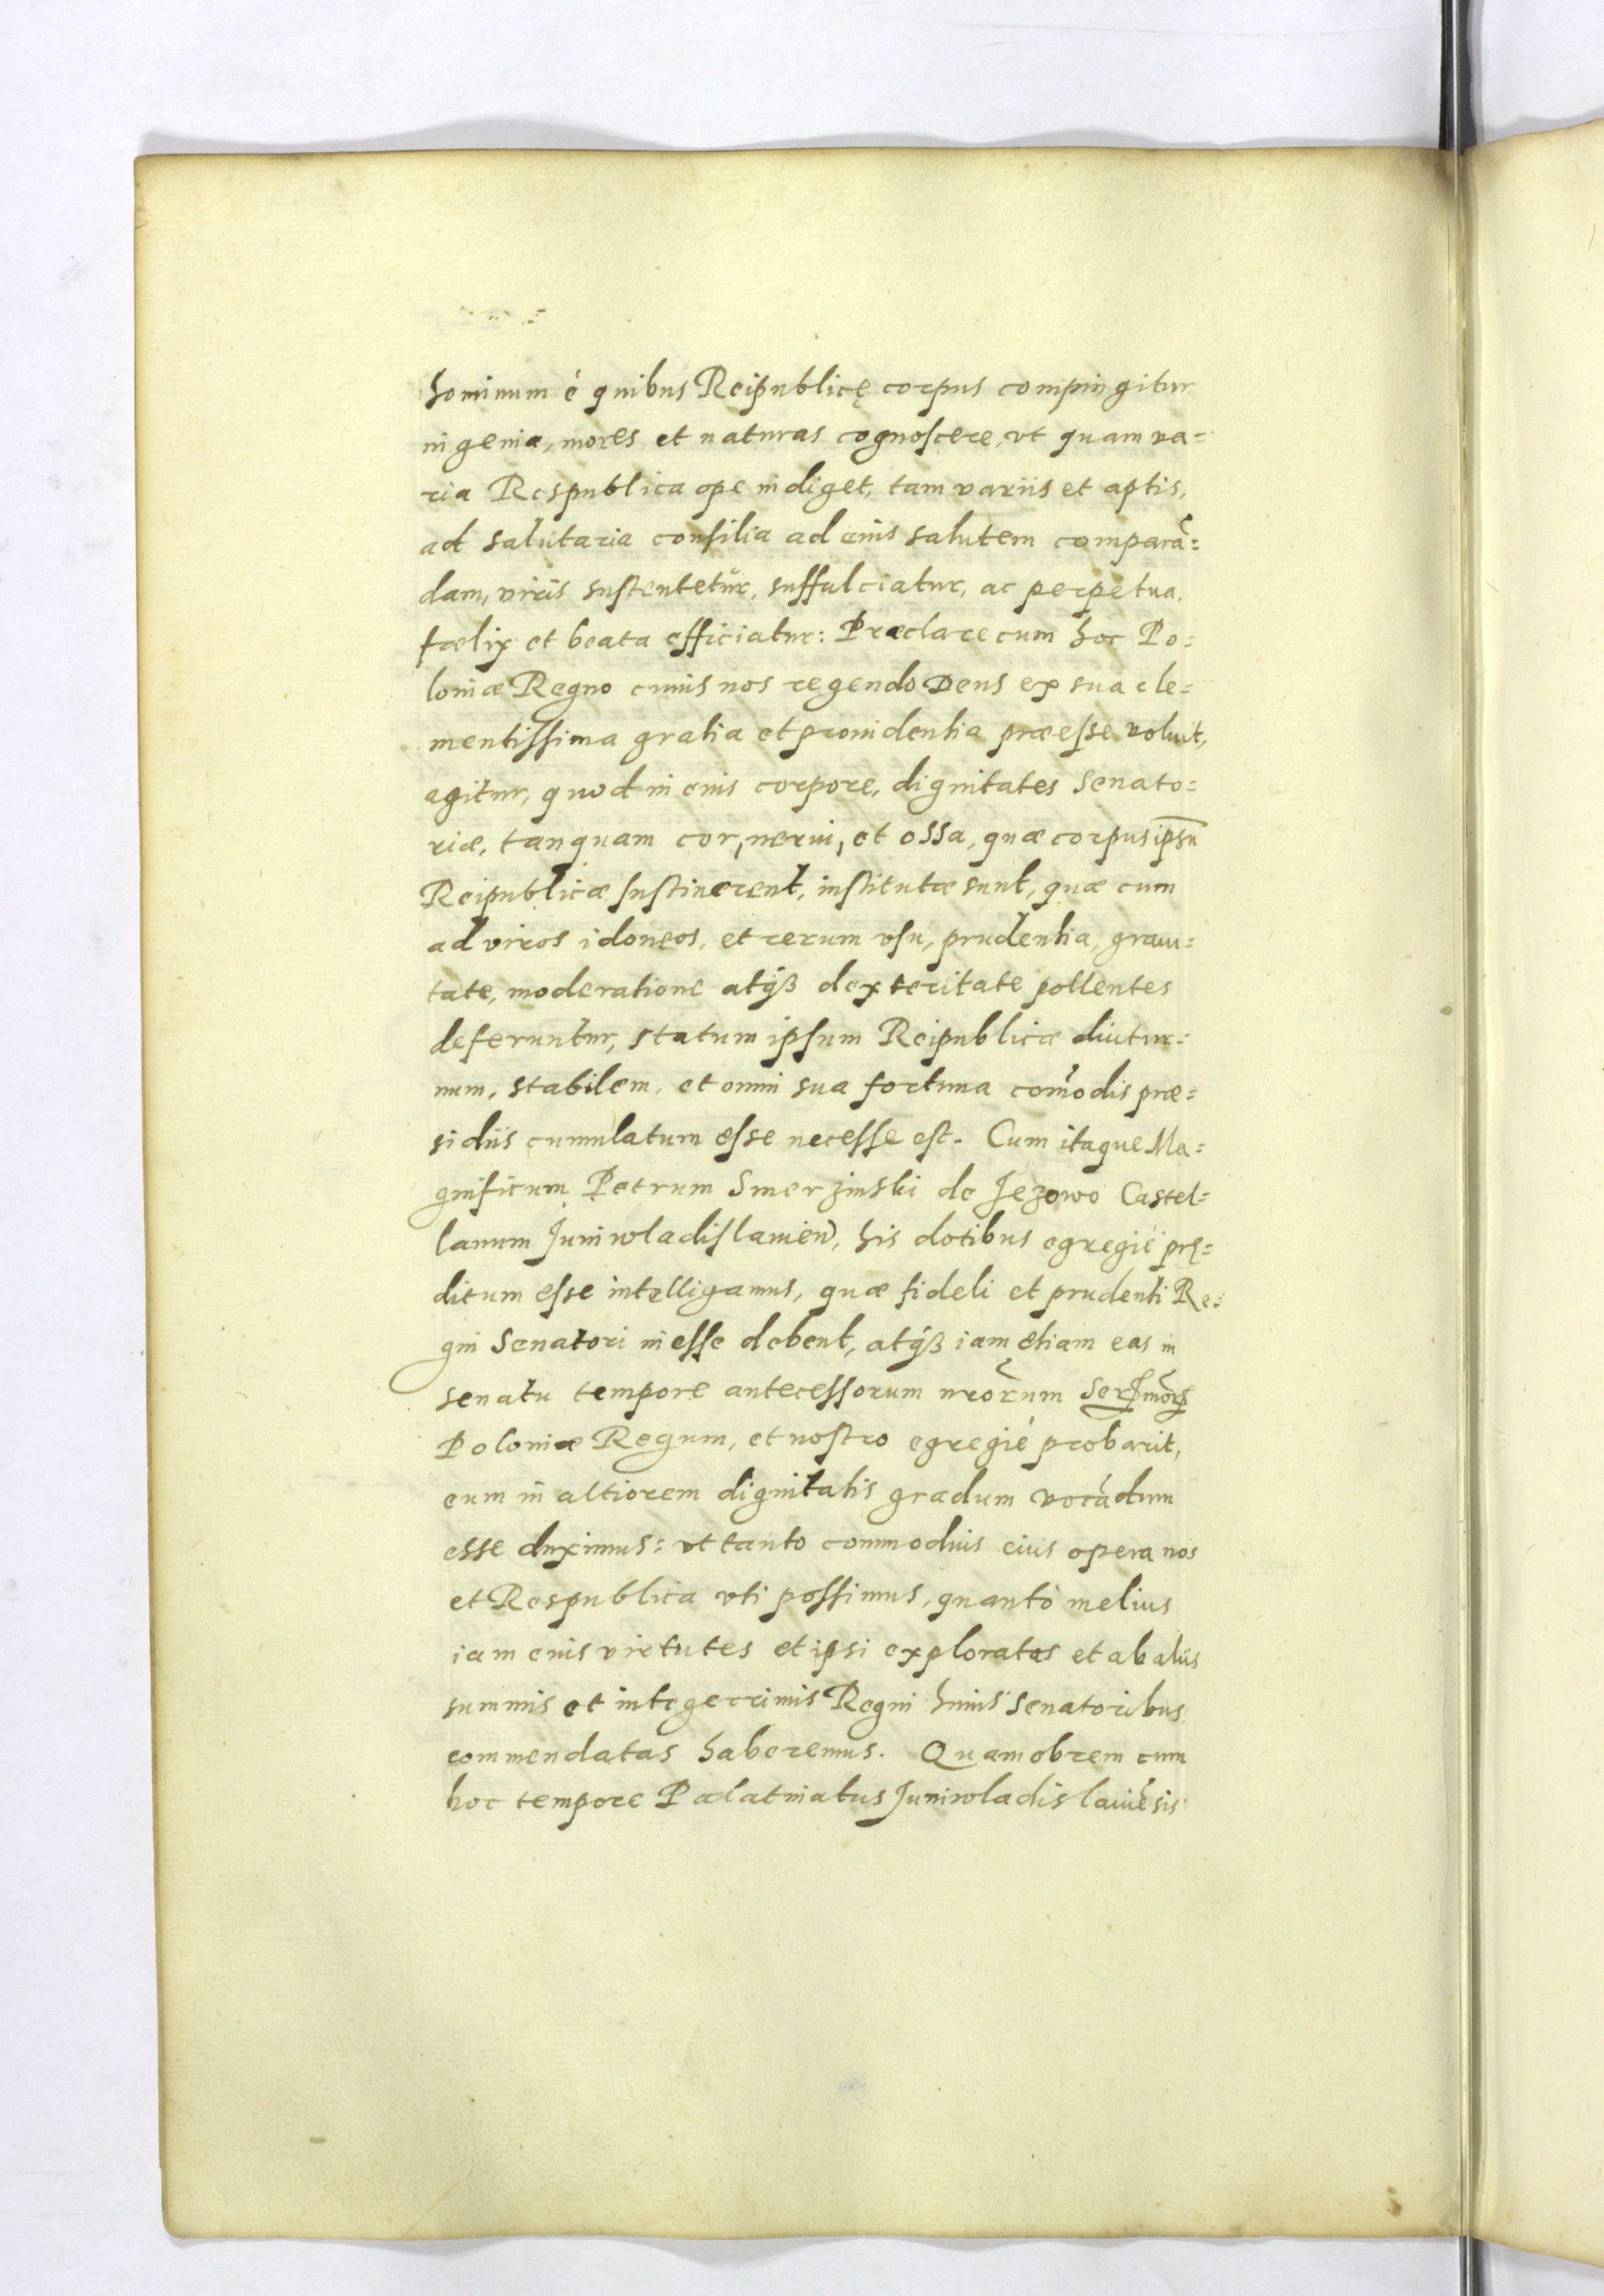 hominum è quibus Reipublicę corpus compingitur
ingenia, mores et naturas cognoscere, vt quam va=
ria Respublica ope indiget, tam variis et aptis,
ad salutaria consilia ad eius salutem comparā=
dam, viris sustentetur, suffulciatur, ac perpetua,
fœlix et beata efficiatur: Præclare cum hoc Po=
loniæ Regno cuius nos regendo Deus ex sua cle=
mentissima gratia et prouidentia præesse voluit,
agitur, quod in eius corpore, dignitates Senato=
riæ, tanquam cor, nerui, et ossa, quæ corpus ipsū
Reipublicæ sustinerent, institutæ sunt, quæ cum
ad viros idoneos, et rerum vsu, prudentia, graui=
tate, moderatione atqȝ dexteritate pollentes
deferuntur, statum ipsum Reipublicæ diutur=
num, stabilem, et omni sua fortuna com̃odis præ=
sidiis cumulatum esse necesse est. Cum itaque Ma=
gnificum Petrum Smerzinski de Jezowo Castel=
lanum Juniwladislauień, his dotibus egregiè prę=
ditum esse intelligamus, quæ fideli et prudenti Re=
gni Senatori inesse debent, atqȝ iam etiam eas in
senatu tempore antecessorum nrorum Sermorꝝ
Poloniæ Regum, et nostro egregiè probarit,
eum in altiorem dignitatis gradum vocādum
esse duximus: vt tanto commodius eius opera nos
et Respublica vti possimus, quantò melius
iam eius virtutes et ipsi exploratas et ab aliis
summis et integerrimis Regni huius Senatoribus
commendatas haberemus. Quamobrem cum
hoc tempore Palatinatus Juniwladislauiēsis